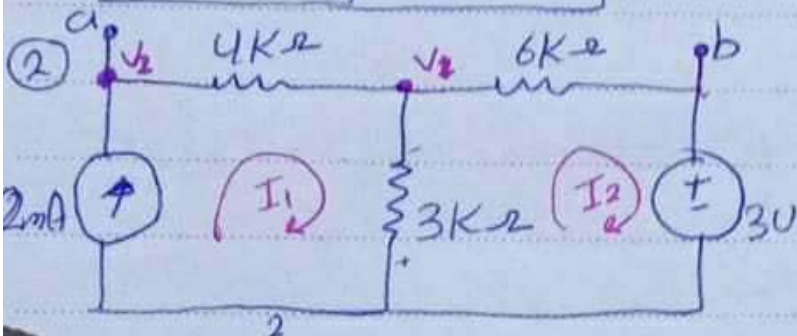 a
② V₂ 4KΩ V₂ 6KΩ b
2mA I₁ 3KΩ I₂ + - 3V
+
2